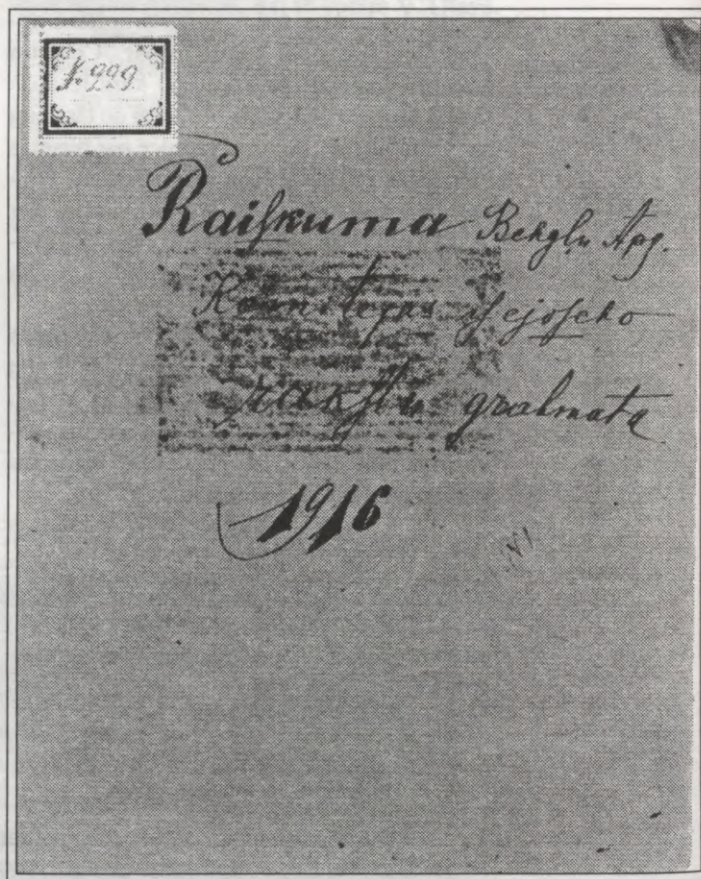 № 229
Raiſkuma Behgļu Apg.
Komitejas iſejoſcho
rakſtu grahmata
1916